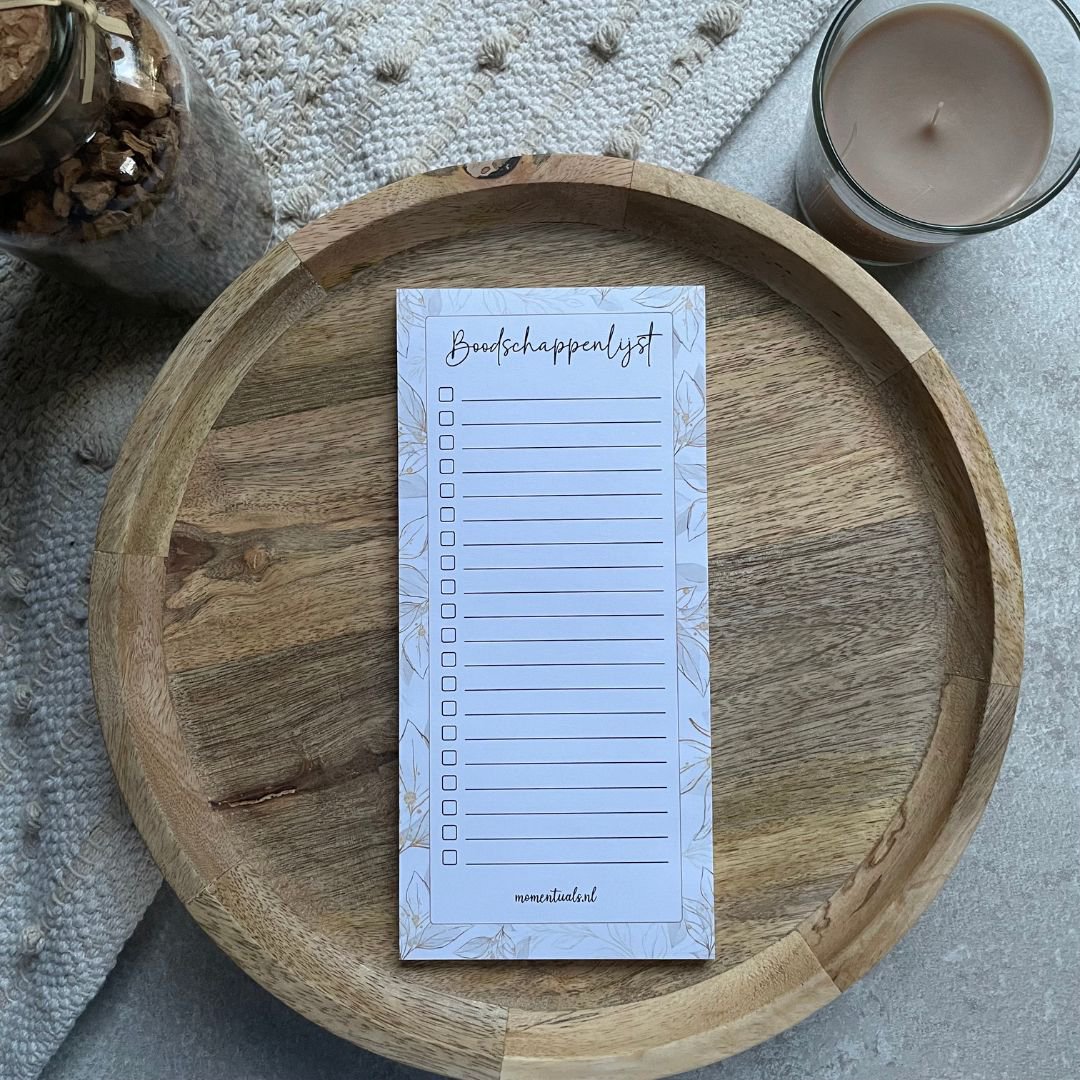 Boodschappenlijst
momentuals.nl